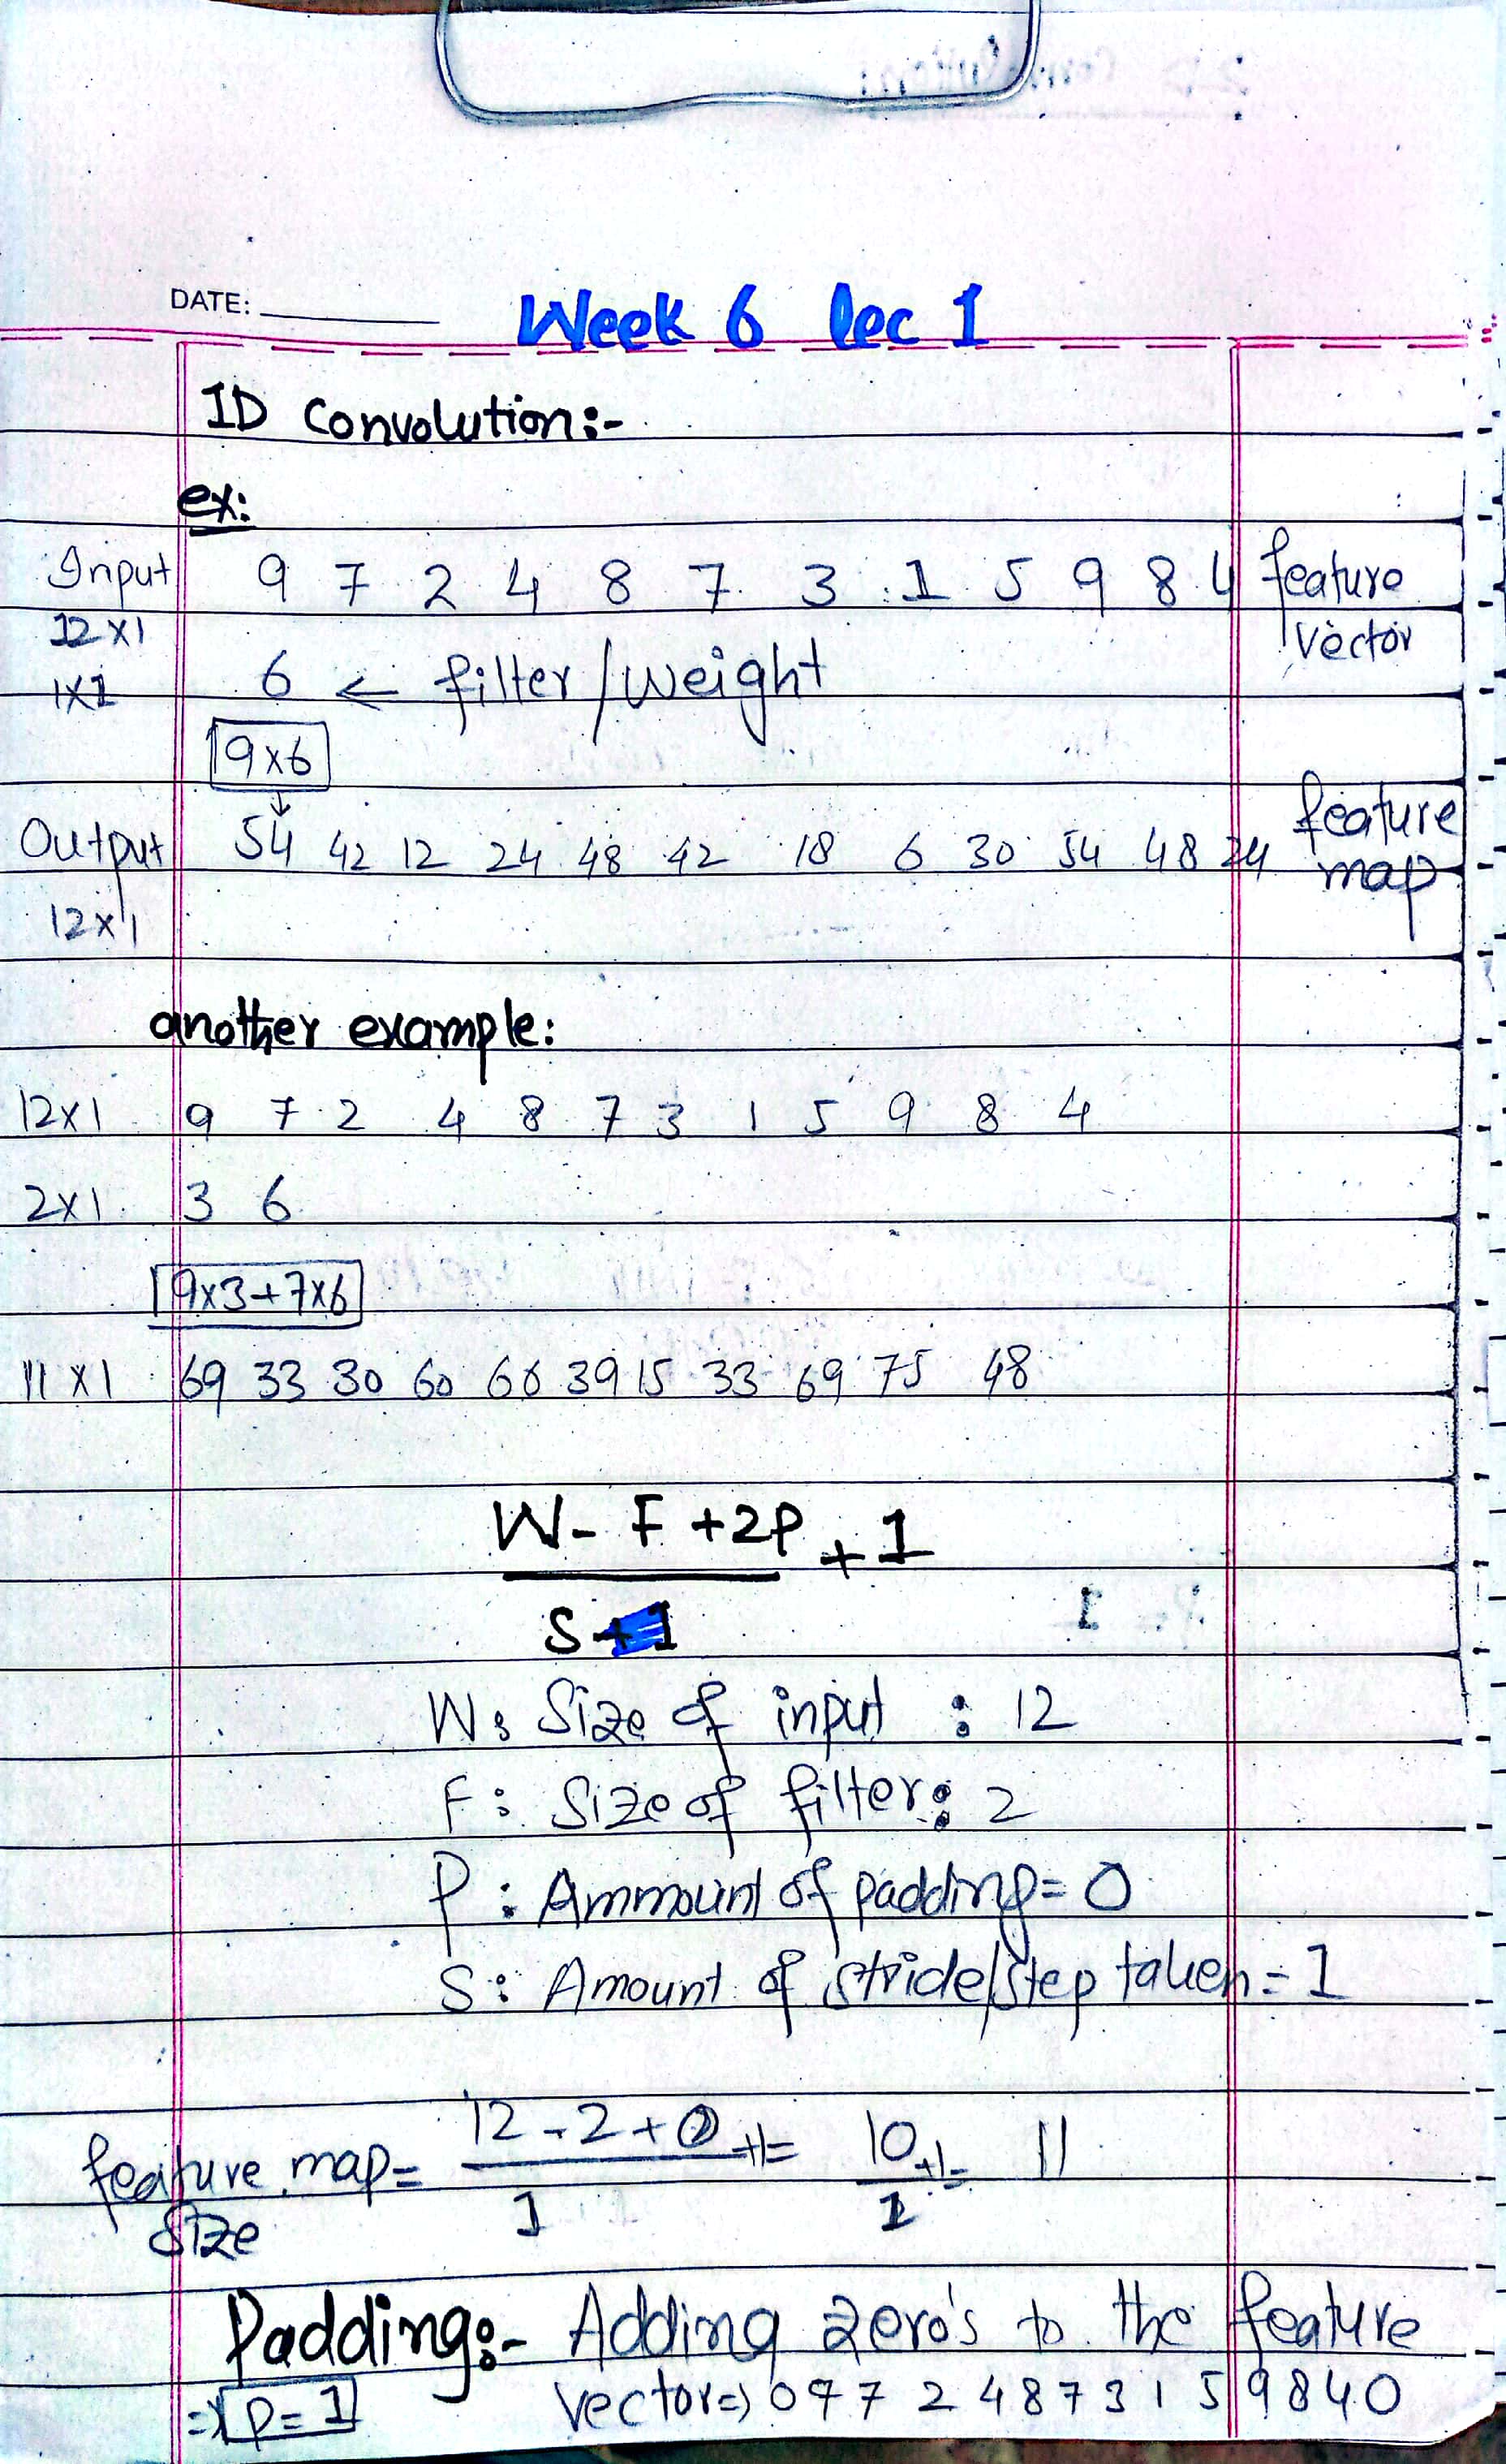 DATE:
Week 6 lec 1
1D Convolution:-
ex:
Input 9 7 2 4 8 7 3 1 5 9 8 4 feature
12x1 vector
1x1 6 ← filter/weight
9x6
↓
Output 54 42 12 24 48 42 18 6 30 54 48 24 feature
12x1 map
another example:
12x1 9 7 2 4 8 7 3 1 5 9 8 4
2x1 3 6
9x3+7x6
11x1 69 33 30 60 66 39 15 33 69 75 48
W- F +2P + 1
S
W: Size of input : 12
F: Size of filter: 2
P: Ammount of padding= 0
S: Amount of stride/step taken = 1
12-2+0 +1= 10 +1= 11
feature map=
1 1
Size
Padding:- Adding zero's to the feature
=> P=1 vector=> 0 9 7 2 4 8 7 3 1 5 9 8 4 0